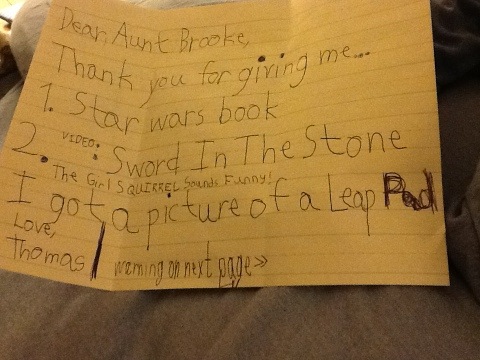 Dear Aunt Brooke,
Thank you for giving me...
1. Star wars book
2. VIDEO: Sword In The Stone
The Girl SQUIRREL Sounds Funny!
I got a picture of a Leap Pad
Love,
Thomas
warning on next page »